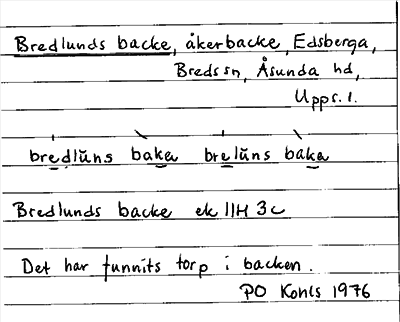 Bredlunds backe, åkerbacke, Edsberga,
Breds sn, Åsunda hd,
Upps. l.
bredlŭns baka brelŭns baka
Bredlunds backe ek 11H 3c
Det har funnits torp i backen.
PO Kohls 1976